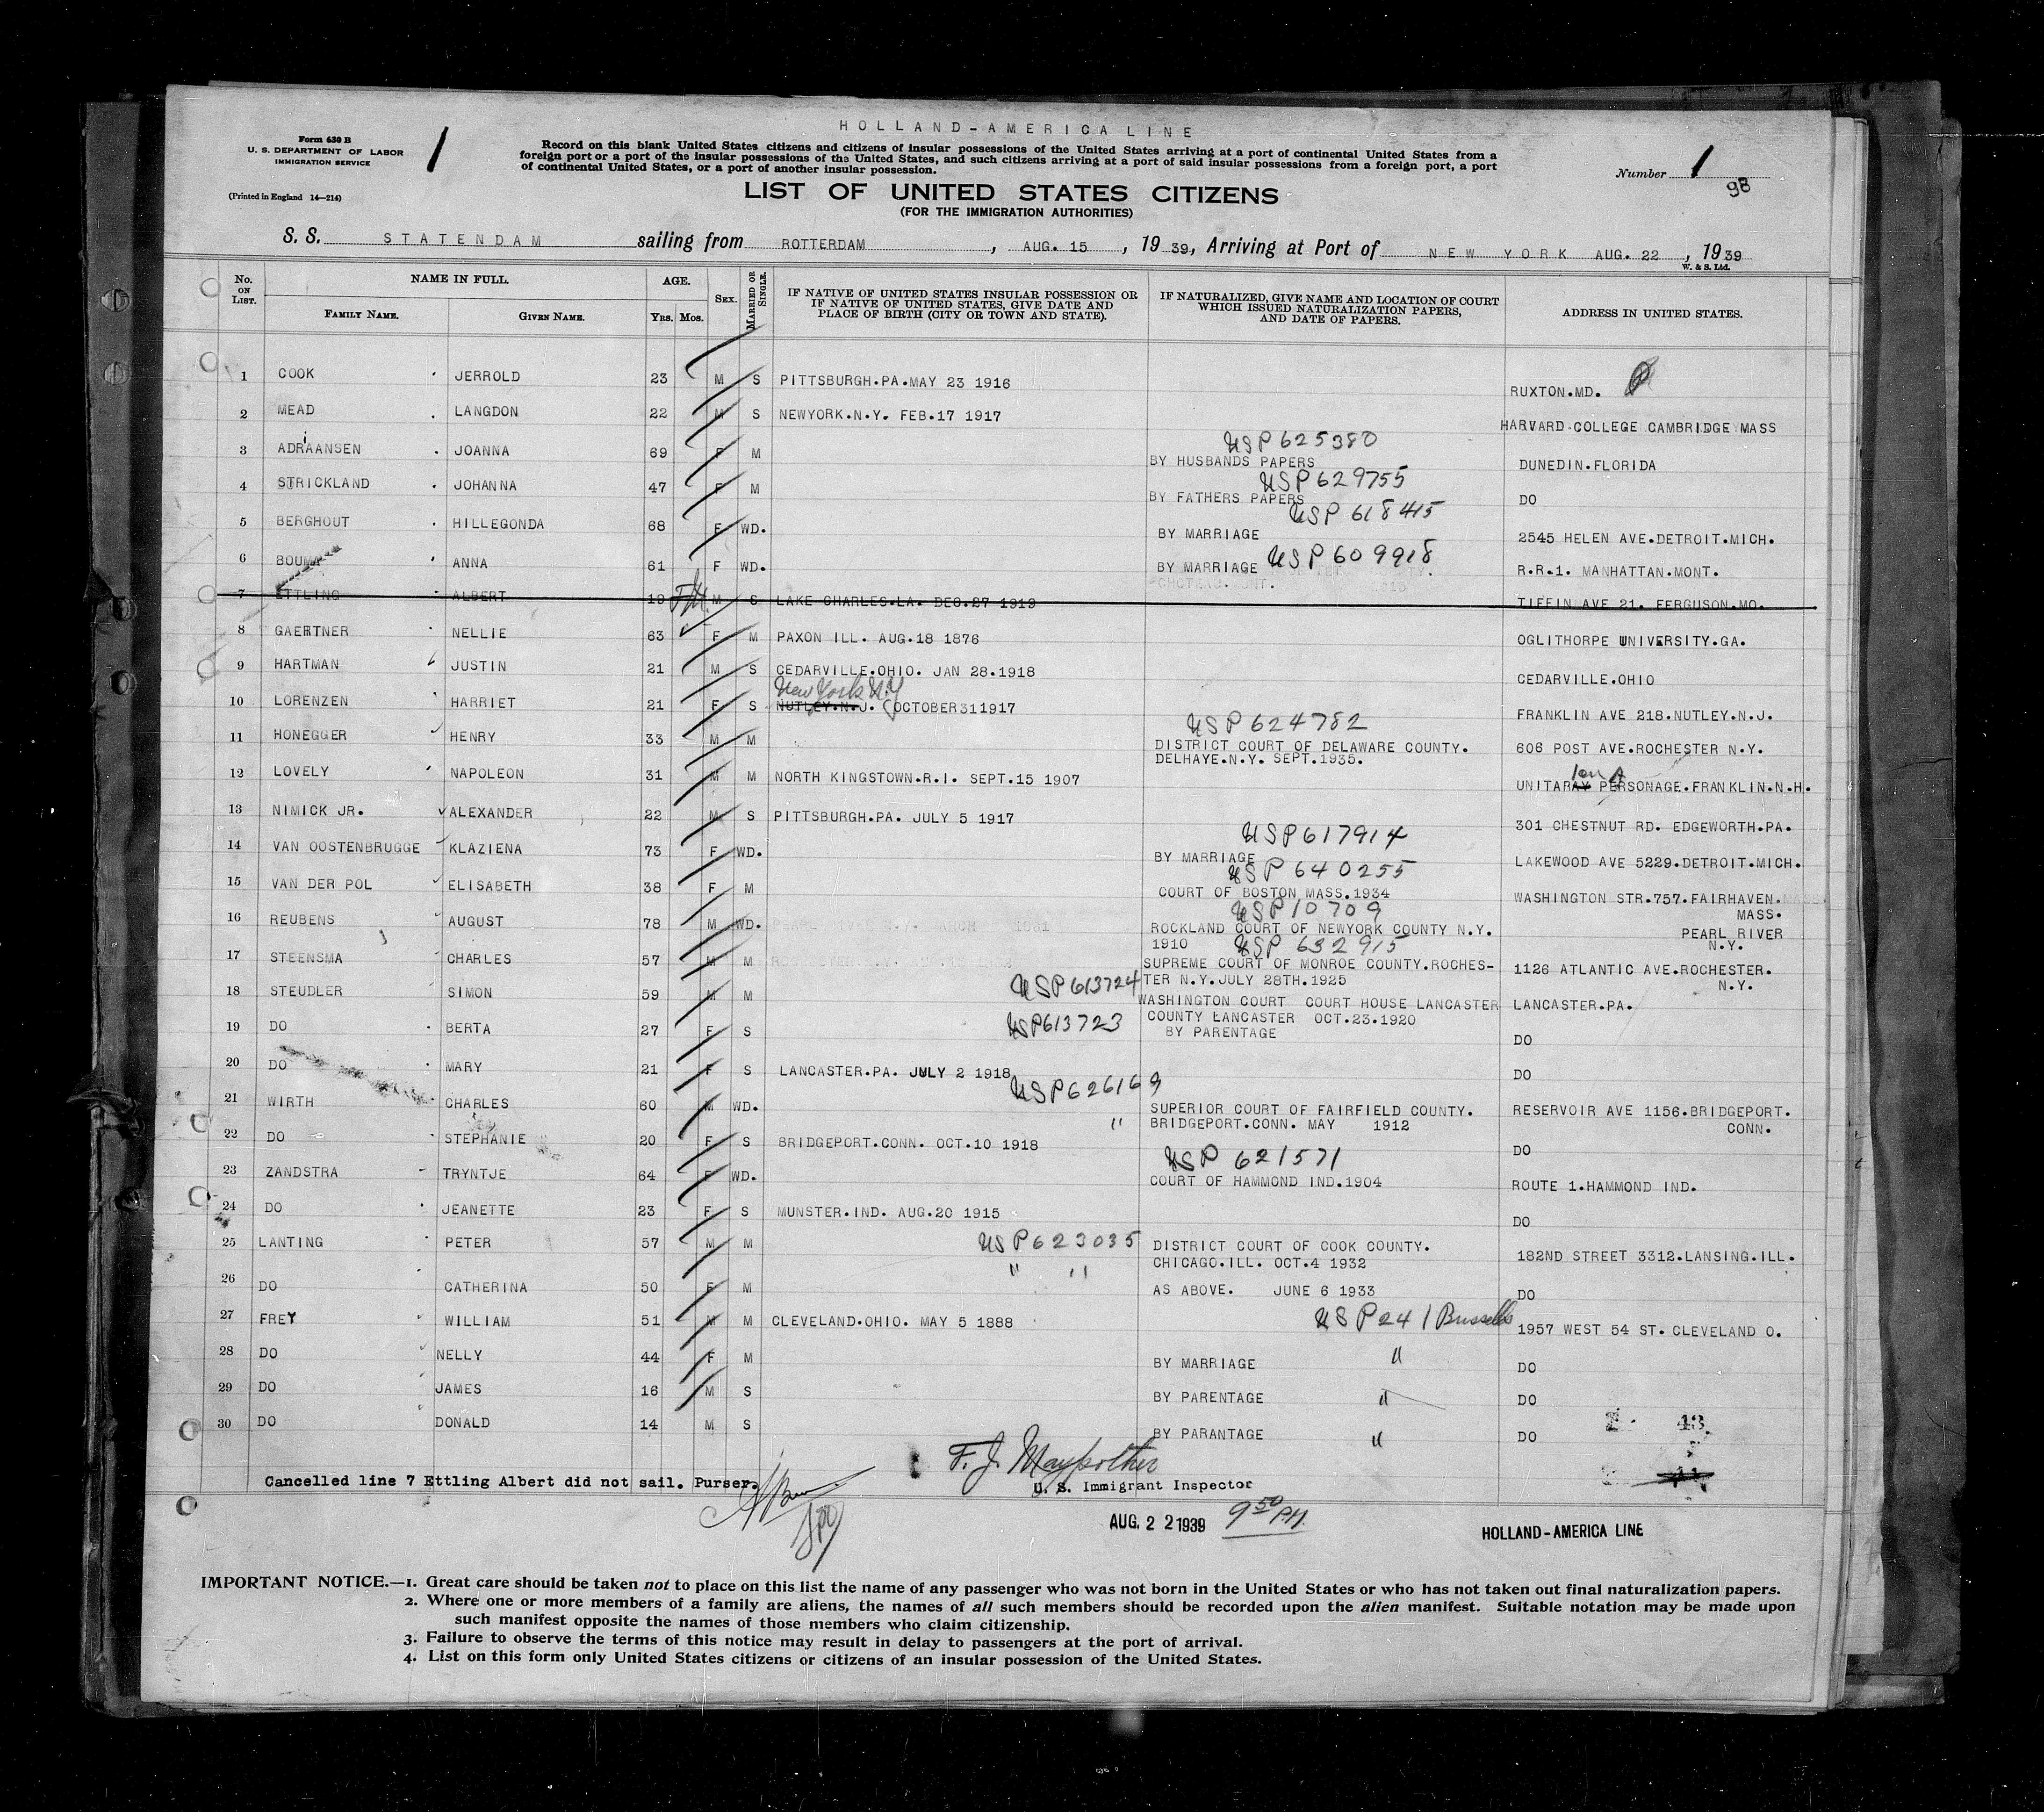 HOLLAND-AMERICA LINE
Form 630 B
U. S. DEPARTMENT OF LABOR
IMMIGRATION SERVICE
(Printed in England 14—214)
1
Record on this blank United States citizens and citizens of insular possessions of the United States arriving at a port of continental United States from a
foreign port or a port of the insular possessions of the United States, and such citizens arriving at a port of said insular possessions from a foreign port, a port
of continental United States, or a port of another insular possession.
Number 1
98
LIST OF UNITED STATES CITIZENS
(FOR THE IMMIGRATION AUTHORITIES)
S. S. STATENDAM sailing from ROTTERDAM, AUG. 15, 1939, Arriving at Port of NEW YORK AUG. 22, 1939
W. & S. Ltd.
No. ON LIST. NAME IN FULL. FAMILY NAME. GIVEN NAME. AGE. Yrs. Mos. SEX. MARRIED OR SINGLE. IF NATIVE OF UNITED STATES INSULAR POSSESSION OR IF NATIVE OF UNITED STATES, GIVE DATE AND PLACE OF BIRTH (CITY OR TOWN AND STATE). IF NATURALIZED, GIVE NAME AND LOCATION OF COURT WHICH ISSUED NATURALIZATION PAPERS, AND DATE OF PAPERS. ADDRESS IN UNITED STATES.
1 COOK JERROLD 23 M S PITTSBURGH.PA.MAY 23 1916 RUXTON.MD.
2 MEAD LANGDON 22 M S NEWYORK.N.Y. FEB.17 1917 HARVARD COLLEGE CAMBRIDGE MASS
3 ADRIAANSEN JOANNA 69 F M USP625380 BY HUSBANDS PAPERS DUNEDIN.FLORIDA
4 STRICKLAND JOHANNA 47 F M USP629755 BY FATHERS PAPERS DO
5 BERGHOUT HILLEGONDA 68 F WD. USP 618415 BY MARRIAGE 2545 HELEN AVE.DETROIT.MICH.
6 BOUMA ANNA 61 F WD. BY MARRIAGE USP609918 R.R.1. MANHATTAN.MONT.
7 ETTLING ALBERT 19 M S LAKE CHARLES.LA. DEC.27 1919 TIFFIN AVE 21. FERGUSON.MO.
8 GAERTNER NELLIE 63 F M PAXON ILL. AUG.18 1876 OGLITHORPE UNIVERSITY.GA.
9 HARTMAN JUSTIN 21 M S CEDARVILLE.OHIO. JAN 28.1918 CEDARVILLE.OHIO
New York N.Y
10 LORENZEN HARRIET 21 F S NUTLEY.N.J. OCTOBER311917 FRANKLIN AVE 218.NUTLEY.N.J.
USP 624782
11 HONEGGER HENRY 33 M M DISTRICT COURT OF DELAWARE COUNTY. 606 POST AVE.ROCHESTER N.Y.
DELHAYE.N.Y. SEPT.1935.
12 LOVELY NAPOLEON 31 M M NORTH KINGSTOWN.R.I. SEPT.15 1907 UNITARAY PERSONAGE.FRANKLIN.N.H.
ian A
13 NIMICK JR. ALEXANDER 22 M S PITTSBURGH.PA. JULY 5 1917 301 CHESTNUT RD. EDGEWORTH.PA.
USP617914
14 VAN OOSTENBRUGGE KLAZIENA 73 F WD. BY MARRIAGE LAKEWOOD AVE 5229.DETROIT.MICH.
USP 640255
15 VAN DER POL ELISABETH 38 F M COURT OF BOSTON MASS.1934 WASHINGTON STR.757.FAIRHAVEN.
MASS.
USP10709
16 REUBENS AUGUST 78 M WD. ROCKLAND COURT OF NEWYORK COUNTY N.Y. PEARL RIVER
1910 N.Y.
USP 632915
17 STEENSMA CHARLES 57 M M SUPREME COURT OF MONROE COUNTY.ROCHES- 1126 ATLANTIC AVE.ROCHESTER.
TER N.Y.JULY 28TH.1925 N.Y.
18 STEUDLER SIMON 59 M M USP613724 WASHINGTON COURT COURT HOUSE LANCASTER LANCASTER.PA.
COUNTY LANCASTER OCT.23.1920
19 DO BERTA 27 F S USP613723 BY PARENTAGE DO
20 DO MARY 21 F S LANCASTER.PA. JULY 2 1918 DO
USP626169
21 WIRTH CHARLES 60 M WD. SUPERIOR COURT OF FAIRFIELD COUNTY. RESERVOIR AVE 1156.BRIDGEPORT.
" BRIDGEPORT.CONN. MAY 1912 CONN.
22 DO STEPHANIE 20 F S BRIDGEPORT.CONN. OCT.10 1918 DO
USP 621571
23 ZANDSTRA TRYNTJE 64 F WD. COURT OF HAMMOND IND.1904 ROUTE 1.HAMMOND IND.
24 DO JEANETTE 23 F S MUNSTER.IND. AUG.20 1915 DO
25 LANTING PETER 57 M M USP623035 DISTRICT COURT OF COOK COUNTY. 182ND STREET 3312.LANSING.ILL.
" " CHICAGO.ILL. OCT.4 1932
26 DO CATHERINA 50 F M AS ABOVE. JUNE 6 1933 DO
27 FREY WILLIAM 51 M M CLEVELAND.OHIO. MAY 5 1888 USP241 Brussels 1957 WEST 54 ST. CLEVELAND O.
28 DO NELLY 44 F M BY MARRIAGE " DO
29 DO JAMES 16 M S BY PARENTAGE " DO
30 DO DONALD 14 M S BY PARANTAGE " DO
43
Cancelled line 7 Ettling Albert did not sail. Purser.
F. J. Maypother
U. S. Immigrant Inspector
AUG. 22 1939 9 50 P.M.
HOLLAND-AMERICA LINE
IMPORTANT NOTICE.—1. Great care should be taken not to place on this list the name of any passenger who was not born in the United States or who has not taken out final naturalization papers.
2. Where one or more members of a family are aliens, the names of all such members should be recorded upon the alien manifest. Suitable notation may be made upon
such manifest opposite the names of those members who claim citizenship.
3. Failure to observe the terms of this notice may result in delay to passengers at the port of arrival.
4. List on this form only United States citizens or citizens of an insular possession of the United States.